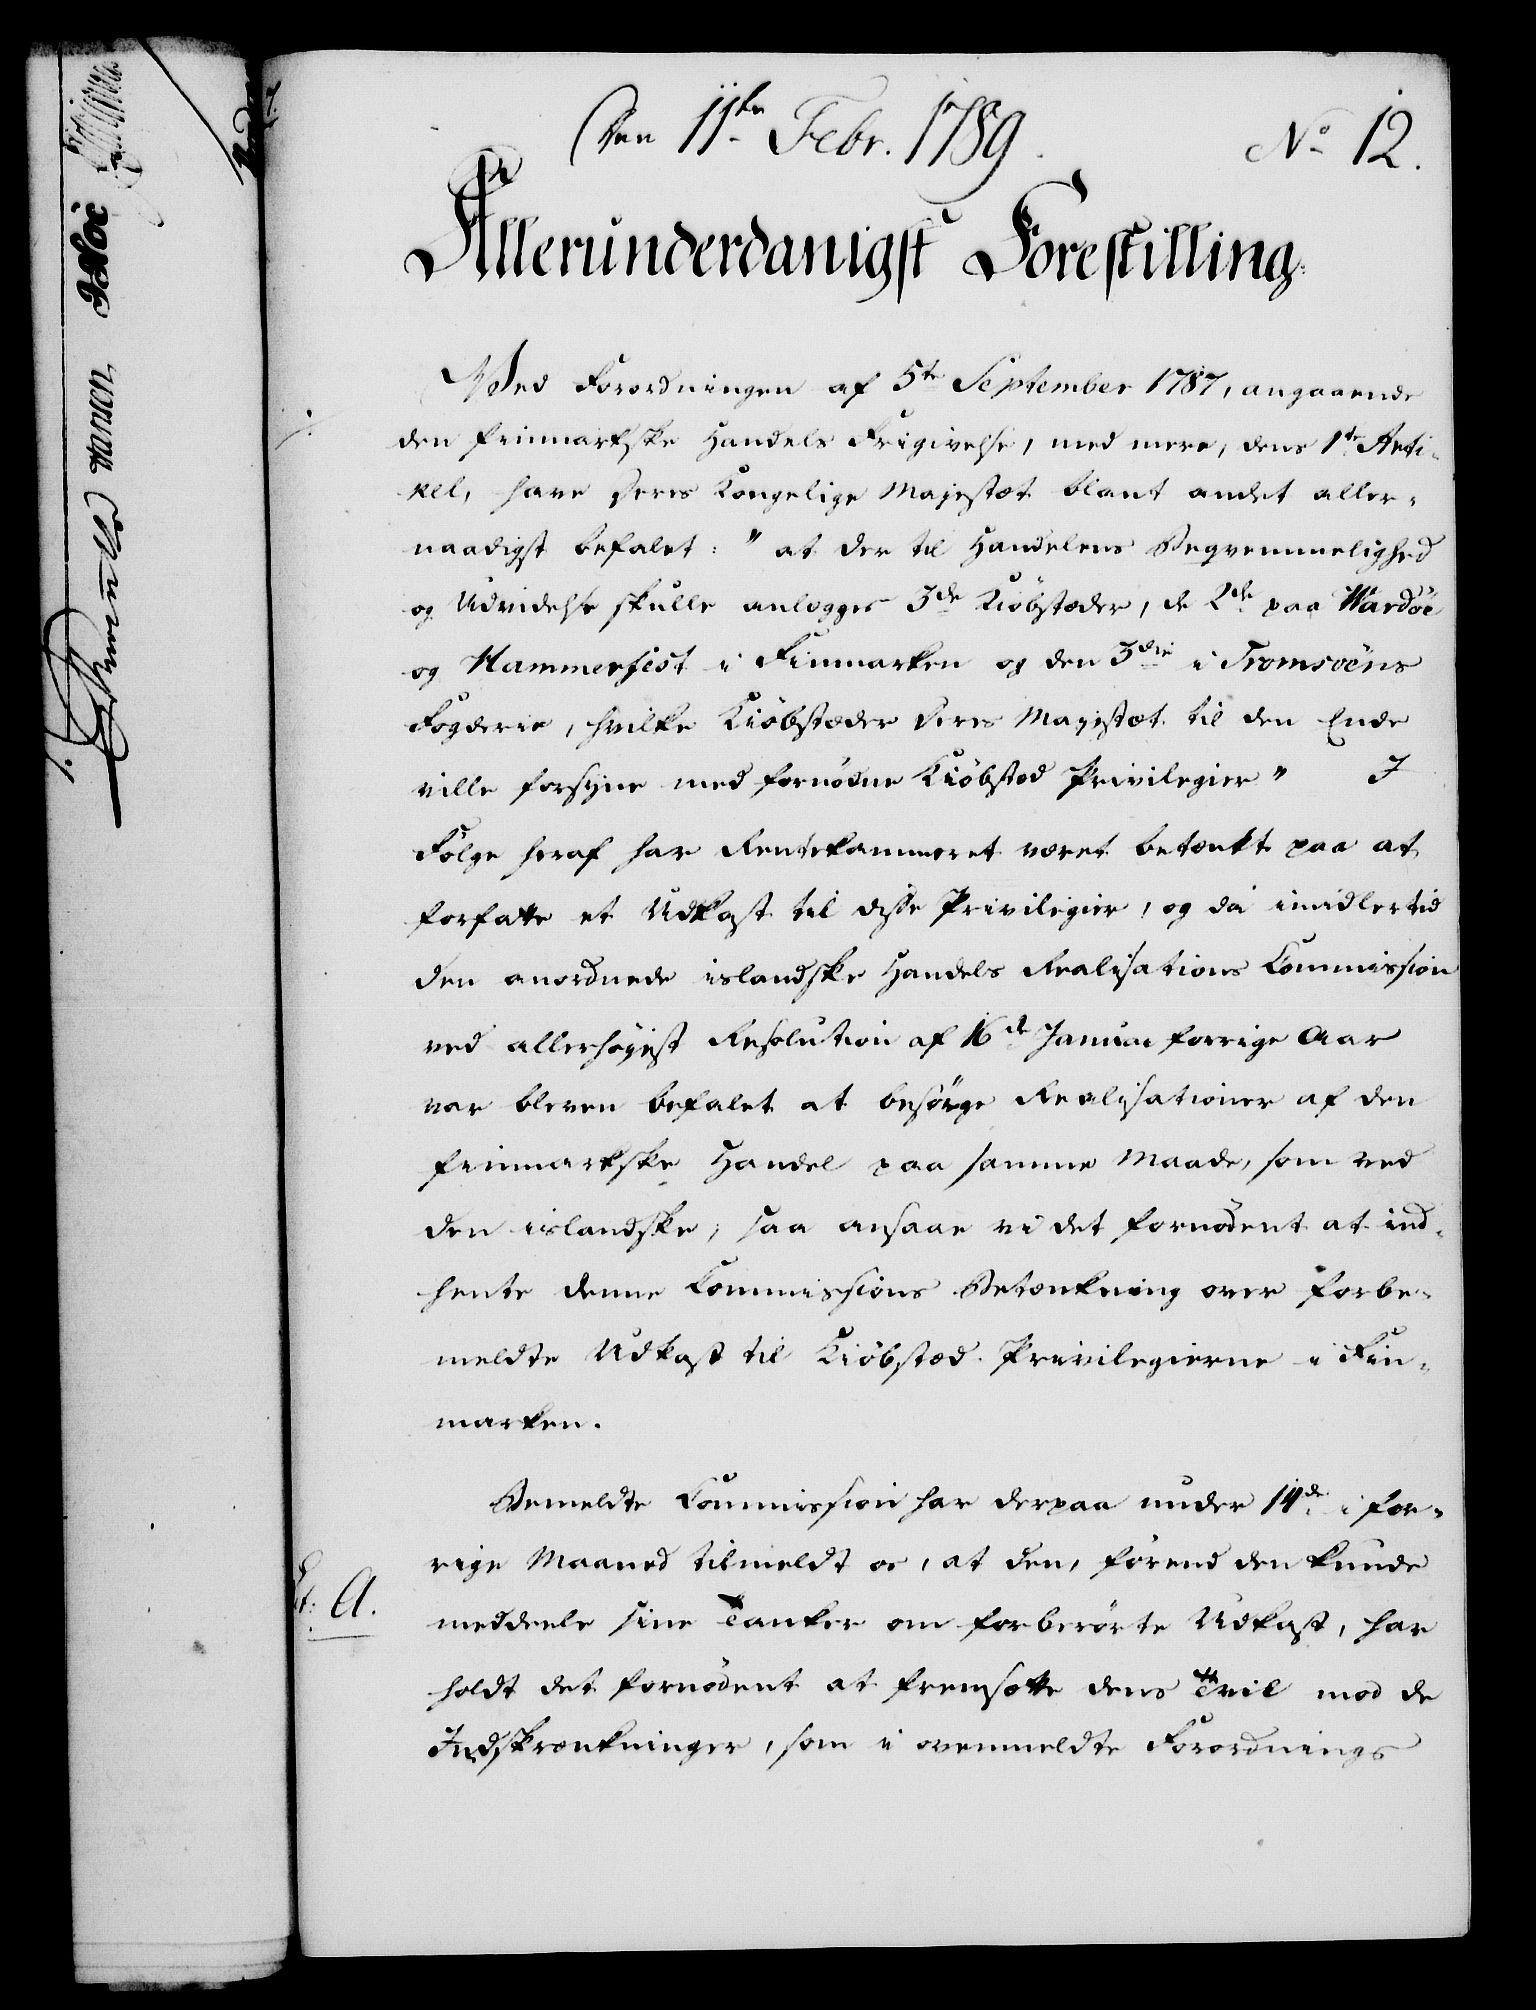 Den 11te Febr. 1789. No 12.
Allerunderdanigst Forestilling.
Ved Forordningen af 5te September 1787, angaaende
den finmarkske Handels Frigivelse, med mere, dens 1ste Arti-
kel, have Deres Kongelige Majestæt blant andet aller-
naadigst befalet: " at der til Handelens Beqvemmelighed
og Udvidelse skulle anlegges 3de Kiöbstæder, de 2de paa Wardöe
og Hammerfest i Finmarken og den 3die i Tromsoëns
Fogderie, hvilke Kiöbstæder Deres Majestæt til den Ende
ville forsyne med fornödne Kiöbstæd Privilegier " I
Fölge heraf har Rentekammeret været betænkt paa at
forfatte et Udkast til disse Privilegier, og da imidlertid
den anordnede islandske Handels Realisations Commission
ved allerhöyest Resolution af 16de Januar forrige Aar
var bleven befalet at besörge Realisationer af den
finmarkske Handel paa samme Maade, som ved
den islandske, saa ansaae vi det fornödent at ind-
hente denne Commissions Betænkning over forbe-
meldte Udkast til Kiöbstæd Privilegierne i Fin-
marken.
Bemeldte Commission har derpaa under 14de i for-
rige Maaned tilmeldt os, at den, förend den kunde
Lit: A.
meddeele sine Tanker om forberörte Udkast, har
holdt det fornödent at fremsætte dens Tvil mod de
Indskrænkninger, som i ovenmeldte Forordnings